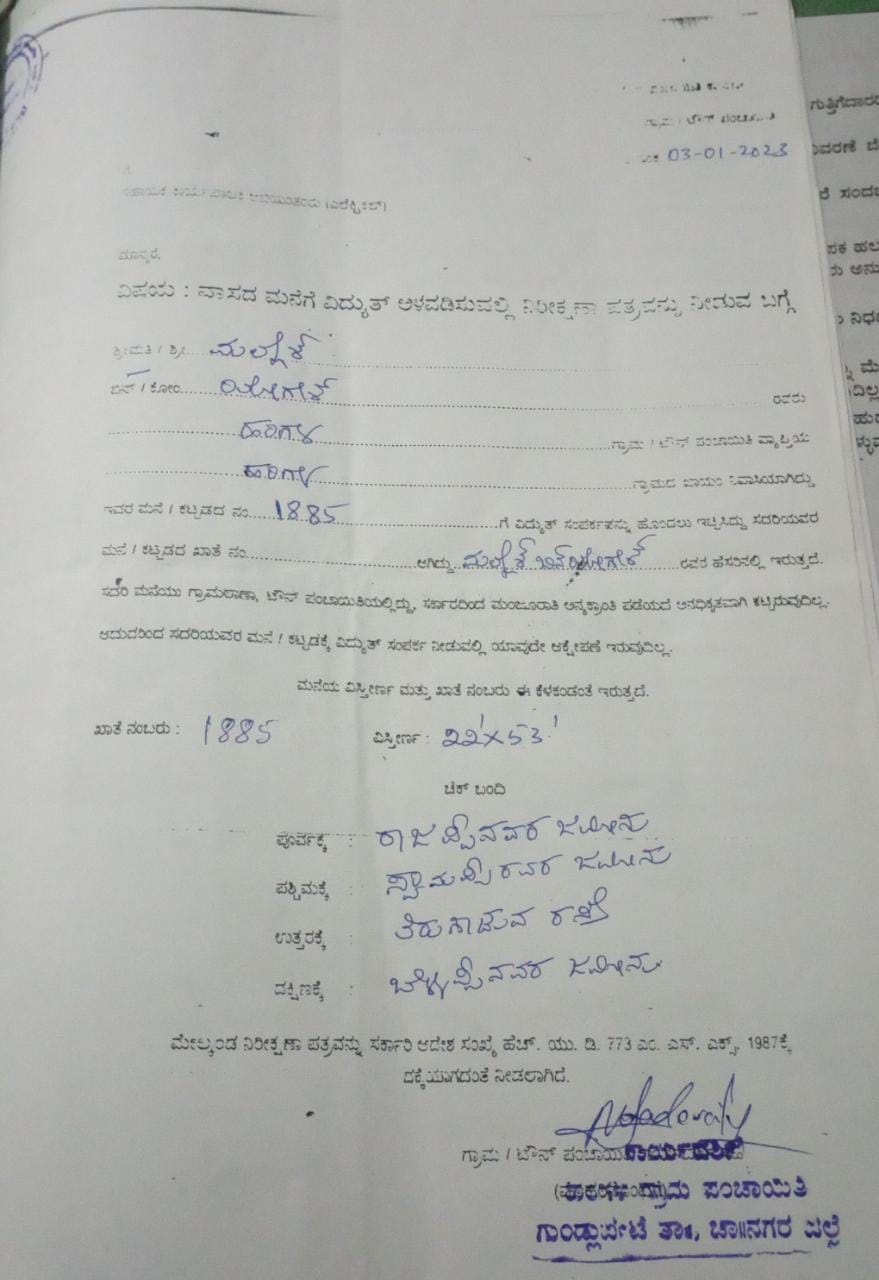 ಗ್ರಾಮ / ಟೌನ್ ಪಂಚಾಯಿತಿ
03-01-2023
ಗೆ,
ಸಹಾಯಕ ಕಾರ್ಯಪಾಲಕ ಅಭಿಯಂತರರು (ಎಲೆಕ್ಟ್ರಿಕಲ್)
ಮಾನ್ಯರೆ,
ವಿಷಯ : ವಾಸದ ಮನೆಗೆ ವಿದ್ಯುತ್ ಅಳವಡಿಸುವಲ್ಲಿ ನಿರೀಕ್ಷಣಾ ಪತ್ರವನ್ನು ನೀಡುವ ಬಗ್ಗೆ
ಶ್ರೀಮತಿ / ಶ್ರೀ.... ಮಲ್ಲೇಶ್
ಬಿನ್ / ಕೋಂ.... ಯೋಗೇಶ್ .... ರವರು
.... ಹಂಗಳ .... ಗ್ರಾಮ / ಟೌನ್ ಪಂಚಾಯಿತಿ ವ್ಯಾಪ್ತಿಯ
.... ಹಂಗಳ .... ಗ್ರಾಮದ ಖಾಯಂ ನಿವಾಸಿಯಾಗಿದ್ದು
ಇವರ ಮನೆ / ಕಟ್ಟಡದ ನಂ.... 1885 .... ಗೆ ವಿದ್ಯುತ್ ಸಂಪರ್ಕವನ್ನು ಹೊಂದಲು ಇಚ್ಛಿಸಿದ್ದು ಸದರಿಯವರ
ಮನೆ / ಕಟ್ಟಡದ ಖಾತೆ ನಂ.... ಆಗಿದ್ದು ಮಲ್ಲೇಶ್ ಬಿನ್ ಯೋಗೇಶ್ ರವರ ಹೆಸರಿನಲ್ಲಿ ಇರುತ್ತದೆ.
ಸದರಿ ಮನೆಯು ಗ್ರಾಮಠಾಣಾ, ಟೌನ್ ಪಂಚಾಯಿತಿಯಲ್ಲಿದ್ದು, ಸರ್ಕಾರದಿಂದ ಮಂಜೂರಾತಿ ಅನ್ಯಕ್ರಾಂತಿ ಪಡೆಯದೆ ಅನಧಿಕೃತವಾಗಿ ಕಟ್ಟಿರುವುದಿಲ್ಲ.
ಆದುದರಿಂದ ಸದರಿಯವರ ಮನೆ / ಕಟ್ಟಡಕ್ಕೆ ವಿದ್ಯುತ್ ಸಂಪರ್ಕ ನೀಡುವಲ್ಲಿ ಯಾವುದೇ ಆಕ್ಷೇಪಣೆ ಇರುವುದಿಲ್ಲ.
ಮನೆಯ ವಿಸ್ತೀರ್ಣ ಮತ್ತು ಖಾತೆ ನಂಬರು ಈ ಕೆಳಕಂಡಂತೆ ಇರುತ್ತದೆ.
ಖಾತೆ ನಂಬರು : 1885 ವಿಸ್ತೀರ್ಣ : 22'x53'
ಚೆಕ್ ಬಂದಿ
ಪೂರ್ವಕ್ಕೆ : ರಾಜಪ್ಪನವರ ಜಮೀನು
ಪಶ್ಚಿಮಕ್ಕೆ : ಸ್ವಾಮಪ್ಪರವರ ಜಮೀನು
ಉತ್ತರಕ್ಕೆ : ತಿರುಗಾಡುವ ರಸ್ತೆ
ದಕ್ಷಿಣಕ್ಕೆ : ಬೆಳ್ಳಪ್ಪನವರ ಜಮೀನು
ಮೇಲ್ಕಂಡ ನಿರೀಕ್ಷಣಾ ಪತ್ರವನ್ನು ಸರ್ಕಾರಿ ಆದೇಶ ಸಂಖ್ಯೆ ಹೆಚ್. ಯು. ಡಿ. 773 ಎಂ. ಎಸ್. ಎಕ್ಸ್. 1987ಕ್ಕೆ
ದಕ್ಕೆಯಾಗದಂತೆ ನೀಡಲಾಗಿದೆ.
ಗ್ರಾಮ / ಟೌನ್ ಪಂಚಾಯಿತಿ
ಕಾರ್ಯದರ್ಶಿ
ಗ್ರಾಮ ಪಂಚಾಯಿತಿ
ಗುಂಡ್ಲುಪೇಟೆ ತಾ॥, ಚಾ॥ನಗರ ಜಿಲ್ಲೆ